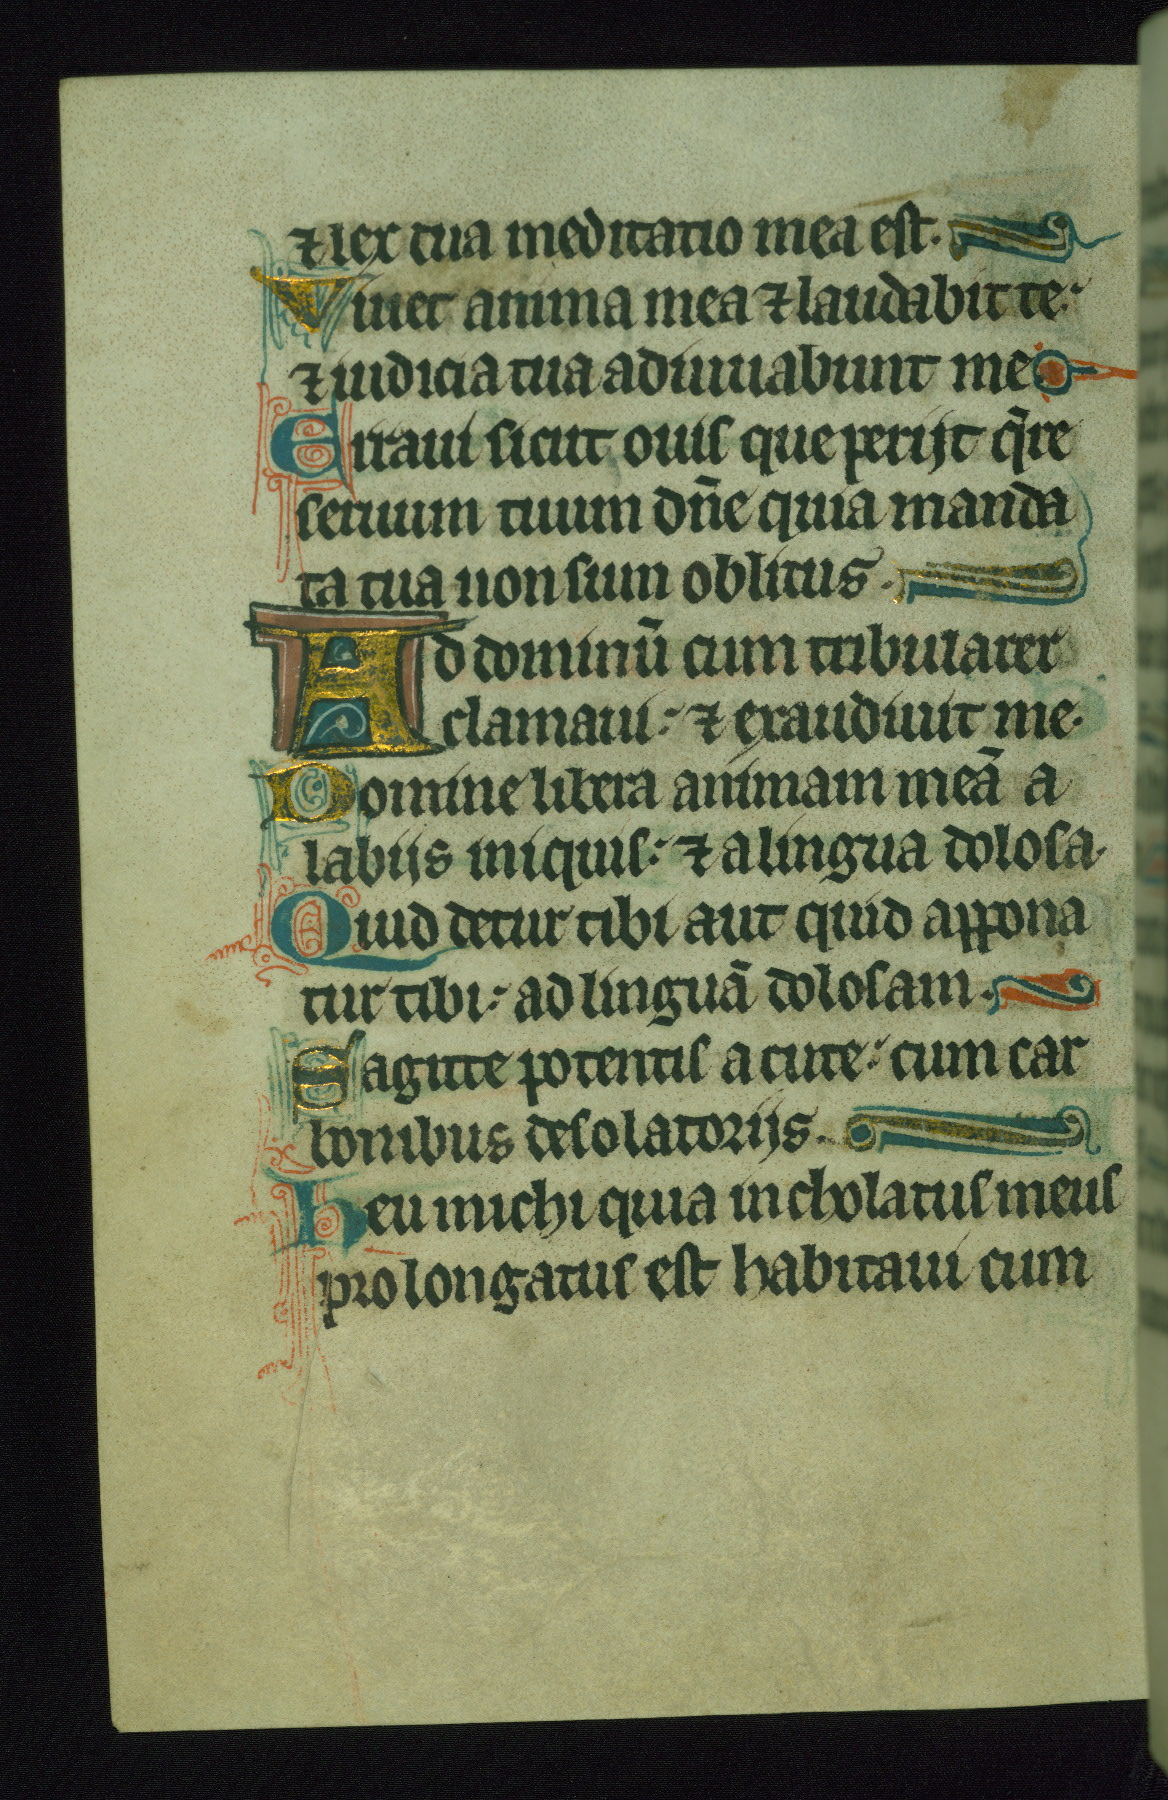 ⁊ lex tua meditatio mea est.
Viuet anima mea ⁊ laudabit te:
⁊ iudicia tua adiuuabunt me
Erraui sicut ouis que perijt q̄re
seruum tuum dn̄e quia manda
ta tua non sum oblitus.
Ad dominū cum tribularer
clamaui: ⁊ exaudiuit me.
Domine libera animam meā a
labijs iniquis: ⁊ a lingua dolosa.
Quid detur tibi aut quid appona
tur tibi: ad linguā dolosam.
Sagitte potentis acute: cum car
bonibus desolatorijs.
Heu michi quia incholatus meus
prolongatus est habitaui cum